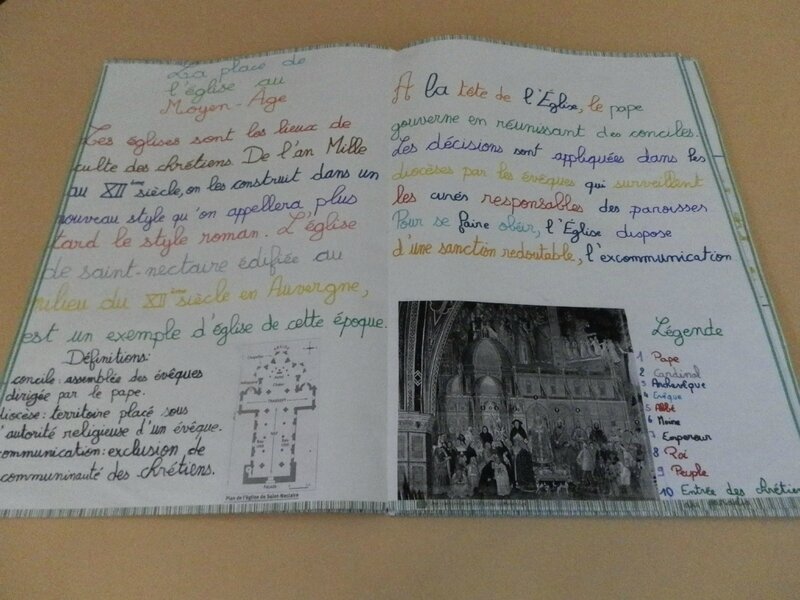 La place de
l'église au
Moyen-Âge
Les églises sont les lieux de
culte des chrétiens. De l'an Mille
au XIIème siècle, on les construit dans un
nouveau style qu'on appellera plus
tard le style roman. L'église
de saint-nectaire édifiée au
milieu du XIIème siècle en Auvergne,
est un exemple d'église de cette époque.
Définitions:
concile: assemblée des évêques
dirigée par le pape.
diocèse: territoire placé sous
l'autorité religieuse d'un évêque.
communication: exclusion de
communinauté des chrétiens.
TRANSEPT
NEF
Plan de l'église de Saint-Nectaire
A la tête de l'Église, le pape
gouverne en réunissant des conciles.
Les décisions sont appliquées dans les
diocèses par les évêques qui surveillent
les curés responsables des paroisses
Pour se faire obéir, l'Église dispose
d'une sanction redoutable, l'excommunication
Légende
1 Pape
2 Cardinal
3 Archevêque
4 Evêque
5 Abbé
6 Moine
7 Empereur
8 Roi
9 Peuple
10 Entrée des chrétien
au paradis